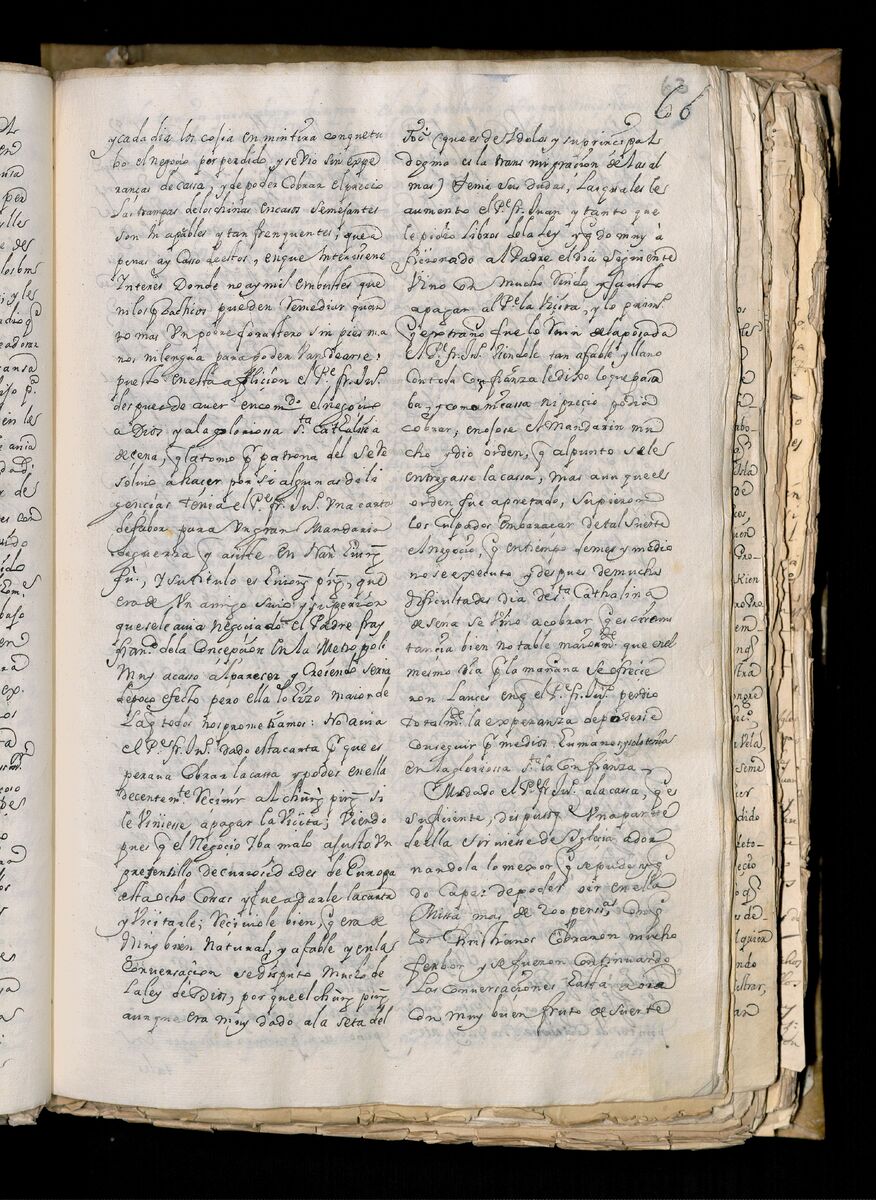 63
66
y cada dia los cosia en mintira conque tu
bo el negocio por perdido, y se vio sin espe
ranças de cassa, y de poder Cobrar el precio
las trampas de los chinas en casos semejantes
son in apables y tan frenquentes, que a
penas ay Casso de estos, en que Interviene
Interes Donde no ay mil embustes que
ni los Prachicos pueden Remediar quan
to mas Un pobre forastero sin pies ma
nos ni lengua para poder Vandearse,
puesto en esta afliction el Pe. fr. Jun.
despues de aver encomdo. el negocio
a Dios y a la gloriossa Sta. Cathalina
de cena, q la tomo pr patrona del se Re
solvio a hacer por si algunas de li
gencias tenia el Pe. fr. Jun. Una carta
de fabor para Un gran Mandarin
de guerra y asiste en Nan
fu, y su titulo es que
era de Un amigo suio y superior
que se le avia negociado el Padre fray
Franco. de la Concepcion En la Metropoli
Muy acasso al parecer y Creiendo seria
de poco efecto pero ella lo Hizo maior de
La q todos nos prometiamos: No avia
el Pe. fr. Jun. dado esta carta pr que es
perava Cobrar la cassa y poder en ella
Decentemte. Recivir al si
le Viniesse a pagar la Vicita; Viendo
pues q el Negocio Iba malo ajusto Un
presentillo de curiosidades de Europa
esta ocho Cosas y fue a darle la carta
y Vicitarle; Reciviole bien, q era de
Muy buen Natural, y afable y en las
Conversacion se disputo Mucho de
La ley de Dios, por que el
aunque era muy dado a la seta del
Foe (que es de Idolos y su principal
dogmo es la trans migracion de las al
mas) tenia sus Dudas, Las quales le
aumento el Pe. fr. Juan y tanto que
le pidio Libros de la Ley y qdo muy a
ficionado al Padre el dia siguiente
Vino con Mucho Ruido y fausto
a pagar al Pe. la Vicita, y lo primo.
q extraño fue lo Ruin de la posada
el Pe. fr. Jun. Viendole tan afable y llano
con toda Confianza le dixo lo que passa
ba, y como ni cassa ni precio podia
cobrar, enojose el Mandarin mu
cho y dio orden, q al punto se les
entregasse la cassa, mas aun que el
orden fue apretado, supieron
los culpados embaraçar de tal suerte
el negocio, q en tiempo de mes y medio
no se executo y despues de muchas
dificultades dia de Sta. Cathalina
de sena se vino a cobrar q es circuns
tancia bien notable maiormte. que en el
mesmo dia pr la mañana se ofrecie
ron Lances en q el Pe. fr. Jun. perdio
totalmte. la esperanza de poderse
Conseguir pr medios Humanos y solo tenia
en la gloriossa Sta. la Confianza
Mudado el Pe. fr. Jun. a la cassa, q es
suficiente, dispusso q Una parte
de ella sirviesse de Iglessia ador
nandola lo mejor q se pudo y q
do capaz de poder oir en ella
Missa mas de 200 personas, Con q
Los Christianos Cobraron mucho
ferbor y se fueron Continuando
Las conversaciones hasta aora
Con muy buen fruto de suerte